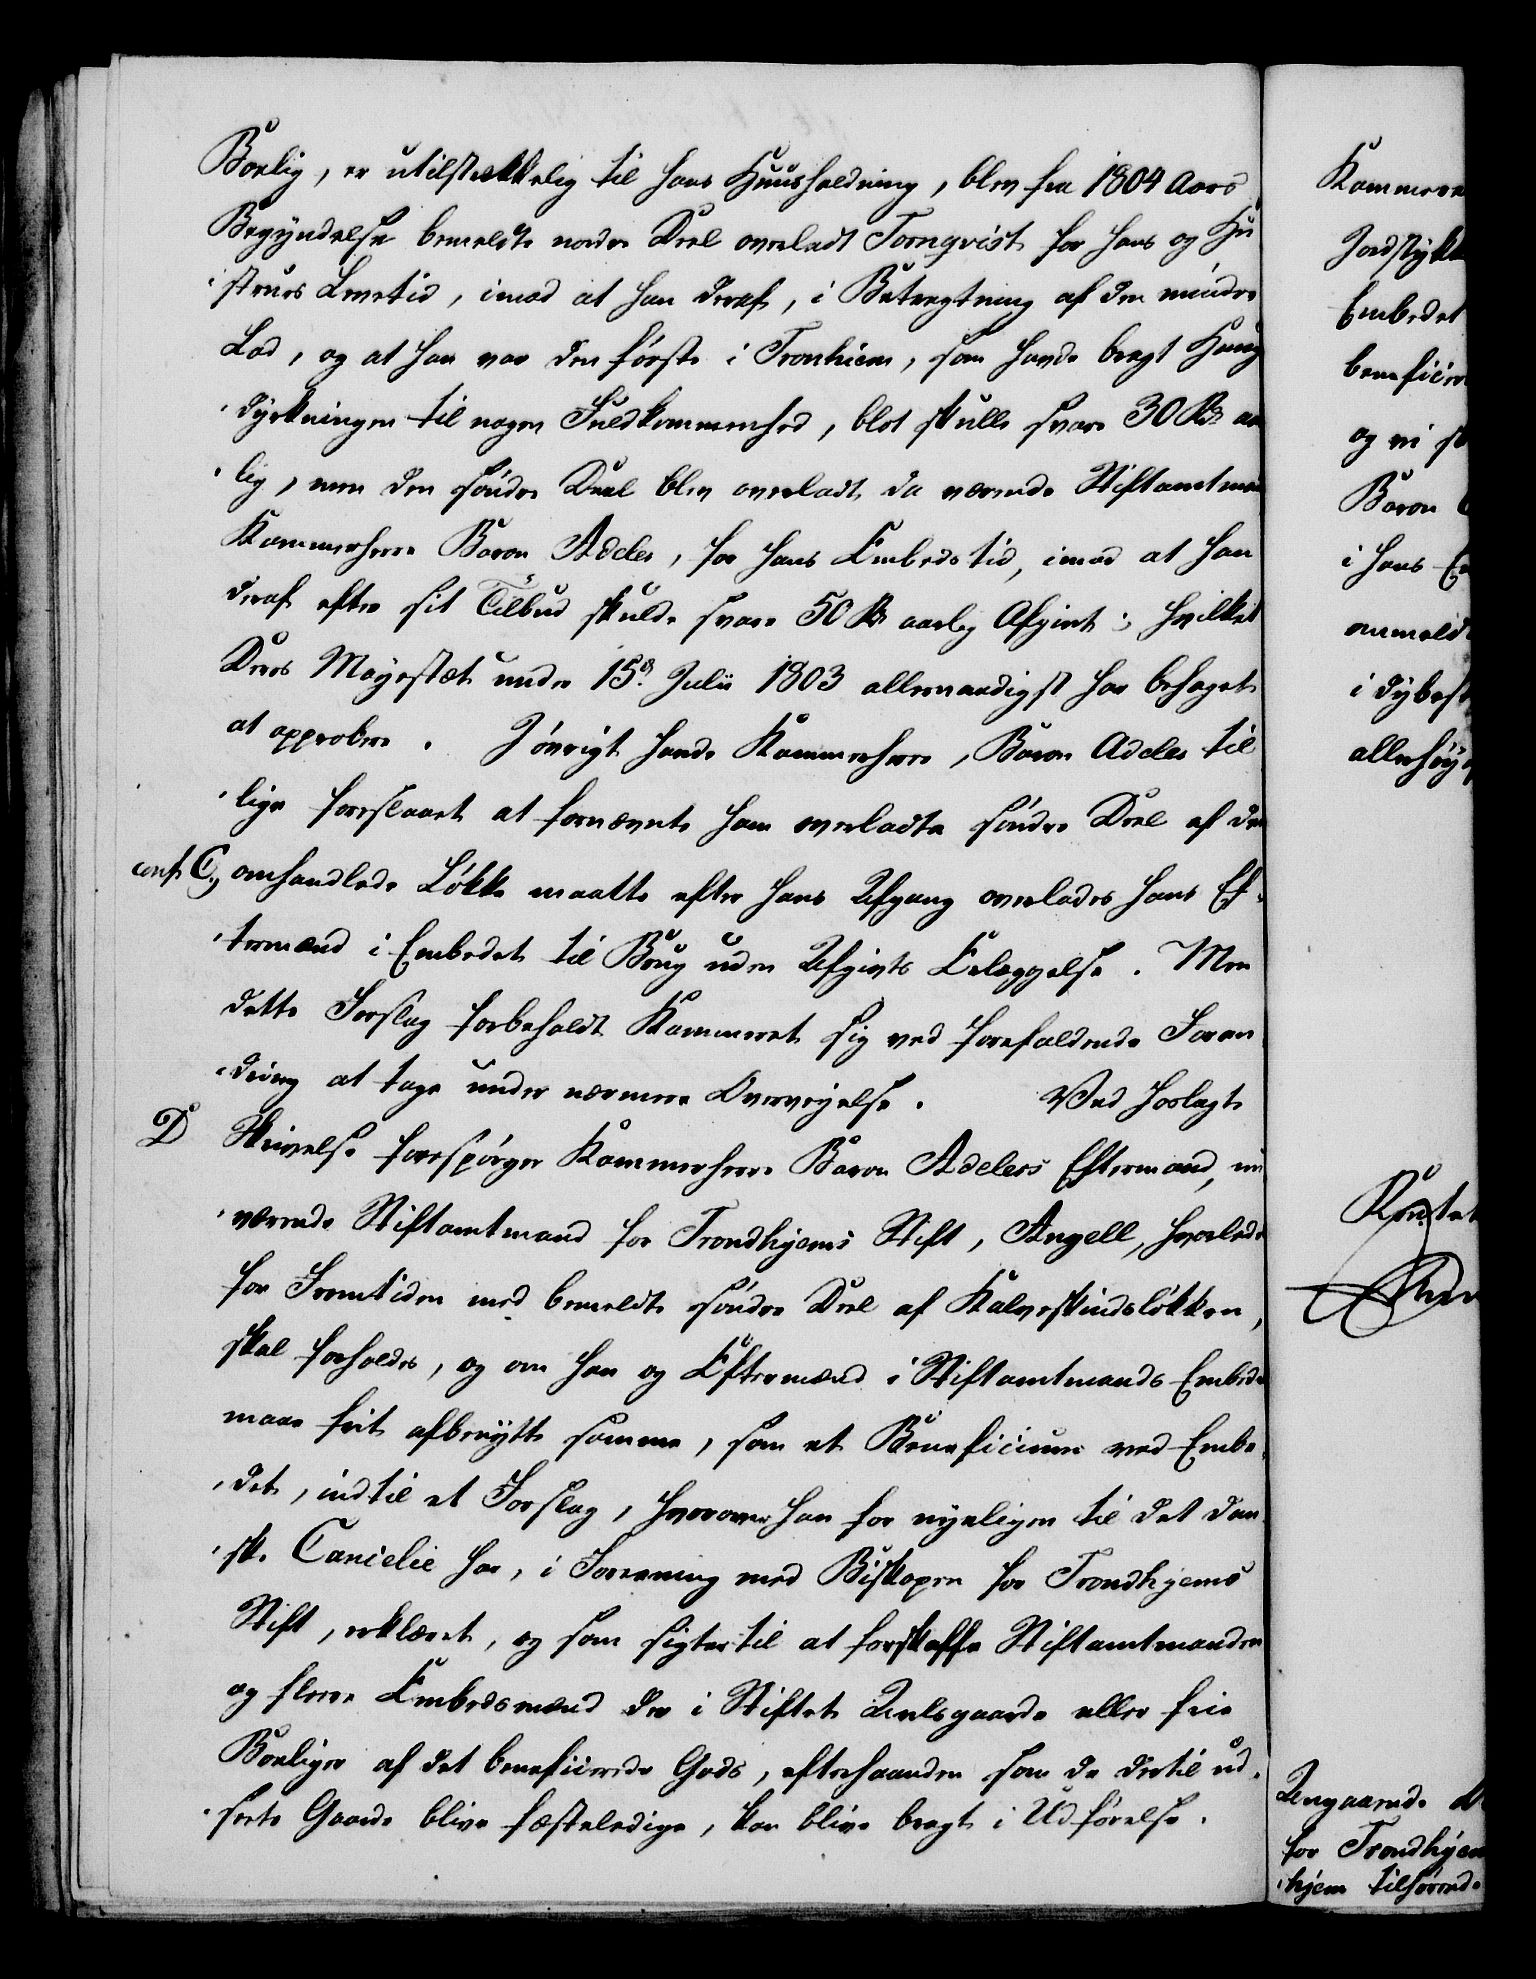 Boelig, er utilstrækkelig til hans Huusholdning, blev fra 1804 Aars
Begyndelse bemeldte nordre Deel overladt Tornqvist for hans og Hu
struees Levetid, imod at han deraf, i Betragtning af den mindre
Lod, og at han var den første i Tronhiem, som havde bragt Hauge
dyrkningen til nogen Fuldkommenhed, blot skulle svare 30 Rd aar
lig, men den søndre Deel blev overladt da værende Stiftamtmand
Kammerherre Baron Adeler, for hans Embedstid, imod at han
deraf efter sit Tilbud skulde svare 50 Rd aarlig Afgivt; hvilket
Deres Mayestæt under 15de Julii 1803 allernaadigst har behaget
at approbere. I øvrigt havde Kammerherre, Baron Adeler til
lige foreslaaet at fornævnte ham overladte søndre Deel af den
conf. C, omhandlede Løkke maatte efter hans Afgang overlades hans Ef-
termænd i Embedet til Brug uden Afgivts Erlæggelse. Men
dette Forslag forbeholdt Kammeret sig ved forefaldende Foran
dring at tage under nærmere Overveyelse. Ved hoslagte
D Skrivelse forespørger Kammerherre Baron Adelers Eftermand, nu
værende Stiftamtmand for Trondhjems Stift, Angell, hvorledes
for Fremtiden med bemeldte søndre Deel af Kalveskindsløkken,
skal forholdes, og om han og Eftermænd i Stiftamtmands Embede
maae frit afbenytte samme, som et Beneficium ved Embe
det, indtil et Forslag, hvorover han for nyeligen til det dan
ske Cancelie har, i Forening med Biskopen for Trondhjems
Stift, erklæret, og som sigter til at forskaffe Stiftamtmanden
og flere Embedsmænd der i Stiftet Avlsgaarde eller frie
Boeliger af det beneficerede Gods, efterhaanden som de dertil ud
seete Gaarde blive fæsteledige, kan blive bragt i Udførelse.
Kammere
Jordstykke
Embedet
beneficere
og vi
Baron
i hans
anmeld
i dybest
allerhøy
for Trondhjem
hjem tilhørende